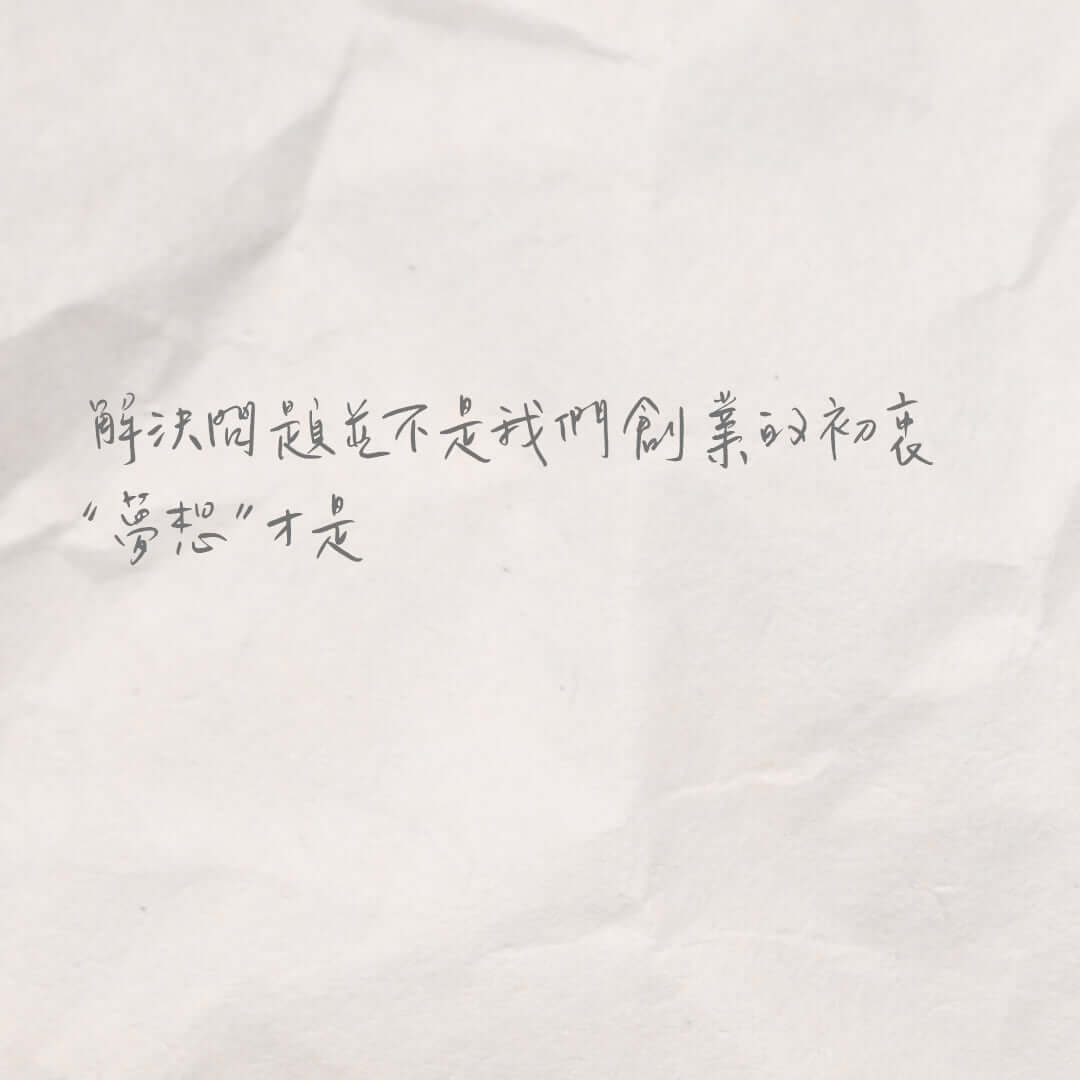 解決問題並不是我們創業的初衷
“夢想”才是